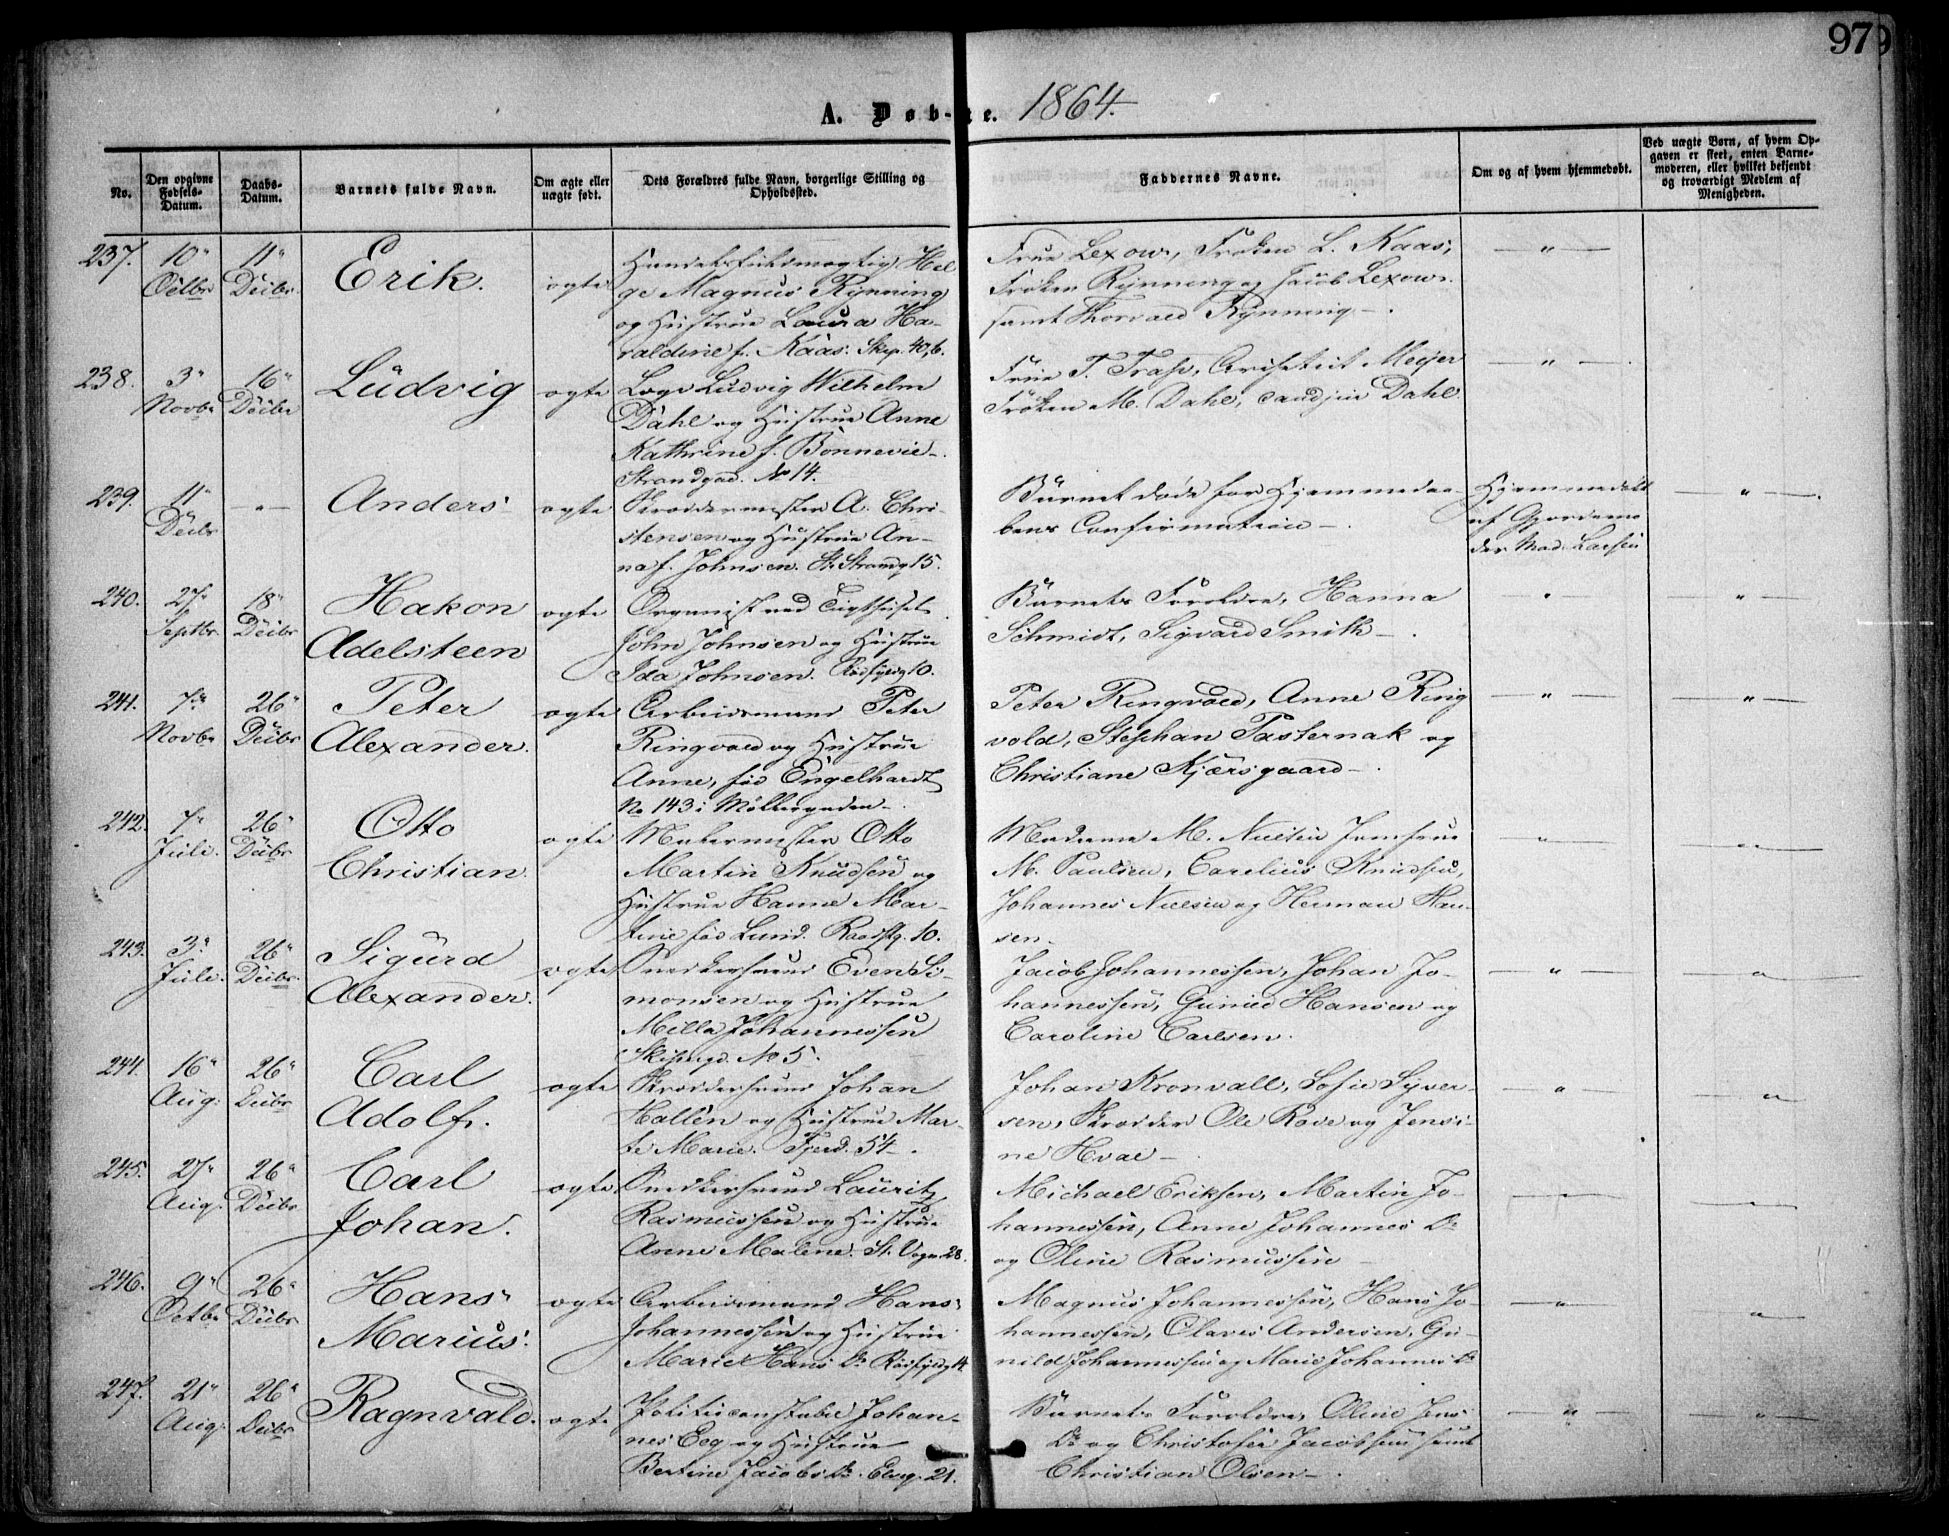 979
A. Døb-te. 1864.
No.
Den opgivne Fødsels-Datum.
Daabs-Datum.
Barnets fulde Navn.
Om ægte eller uægte født.
Dets Forældres fulde Navn, borgerlige Stilling og Opholdssted.
Faddernes Navne.
Om og af hvem hjemmedøbt.
Ved uægte Børn, af hvem Opgaven er skeet, enten Barnemoderen, eller hvilket bekjendt og troværdigt Medlem af Menigheden.
237. 10" Octbr 11" Decbr. Erik. ægte
Handelsfuldmægtig Hel
ge Magnus Rynning
og Hustrue Laura Ha-
raldine f. Kaas. Skip. 40, b.
Frue Lexow, Frøken L. Kaas,
Frøken Rynning og Jacob Lexow.
samt Thorvald Rynning.
238. 3" Novbr 16" Decbr Ludvig ægte
Læge Ludvig Wilhelm
Dahl og Hustrue Anne
Kathrine f. Bonnevie.
Strandgad. No 14.
Frue T. Trap, Meyer
Frøken M. Dahl, Dahl
239. 11" Decbr. Anders ægte
Skrædermester A. Chri-
stensen og Hustrue An-
na f. Johnsen. St. Strandg 15.
Barnet døde før Hjemmedaa-
bens Confirmation.
Hjemmedøbt
af Gjordemo
der Mad. Larsen
240. 27" Septbr. 18" Decbr Hakon
Adelsteen ægte
Organist ved Tugthuset
John Johnsen og Hustrue
Ida Johnsen. 10.
Barnets Forældre, Hanna
Schmidt, Sigvard Smith.
241. 7" Novbr 26" Decbr Peter
Alexander. ægte
Arbeidsmand Peter
Ringvold og Hustrue
Anne, fød Engelhardt
No 143 i Møllergaden.
Peter Ringvold, Anne Ring
vold, Stephan Pasternak og
Christiane Kjærsgaard.
242. 7" Juli. 26" Decbr Otto
Christian. ægte
Malermester Otto
Martin Knudsen og
Hustrue Hanne Mar-
tine fød Lund. Raadstg. 10.
Madame M. Nielsen Jomfrue
M. Paulsen, Carelius Knudsen,
Johannes Nielsen og Herman Han-
sen.
243. 3" Juli. 26" Decbr. Sigurd
Alexander. ægte
Snedkersvend Even Si-
monsen og Hustrue
Milla Johannessen
No 5.
Jacob Johannessen, Johan Jo-
hannessen, Gunild Hansen og
Caroline Carlsen.
244. 16" Aug: 26" Decbr Carl
Adolf. ægte
Skræddersvend Johan
Hallén og Hustrue Mar-
te Marie. Fjerd. 54.
Johan Kronvall, Sofie Syver-
sen, Skrædder Ole Rove og Jensi-
ne Hval
245. 27" Aug. 26" Decbr Carl
Johan. ægte
Snedkersvend Lauritz
Rasmussen og Hustrue
Anne Malene. St. Vogn. 28.
Michael Eriksen, Martin Jo-
hannessen, Anne Johannes Dr
og Oline Rasmussen
246. 9" Octbr 26" Decbr Hans
Marius. ægte
Arbeidsmand Hans
Johannessen og Hustrue
Marie Hans Dr. 14.
Magnus Johannessen, Hans Jo-
hannessen, Olaves Andersen, Gu-
nild Johannessen og Marie Johannes Dr
247. 21" Aug. 26" Decbr Ragnvald. ægte
Politiconstabel Johan-
nes Eeg og Hustrue
Bertine Jacobs Dr. Elveg. 21.
Barnets Forældre, Oline Jens
Dr og Christofer Jacobsen samt
Christian Olsen.